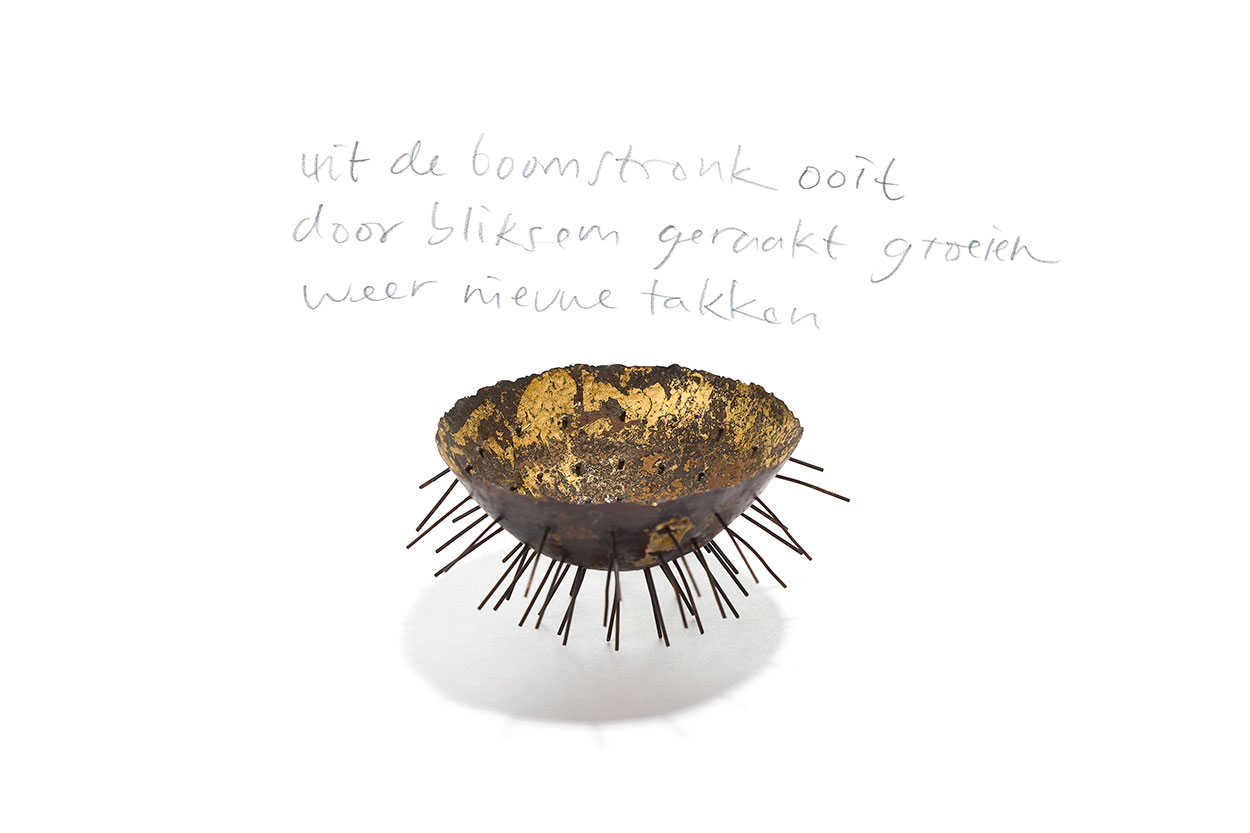 uit de boomstronk ooit
door bliksem geraakt groeien
weer nieuwe takken